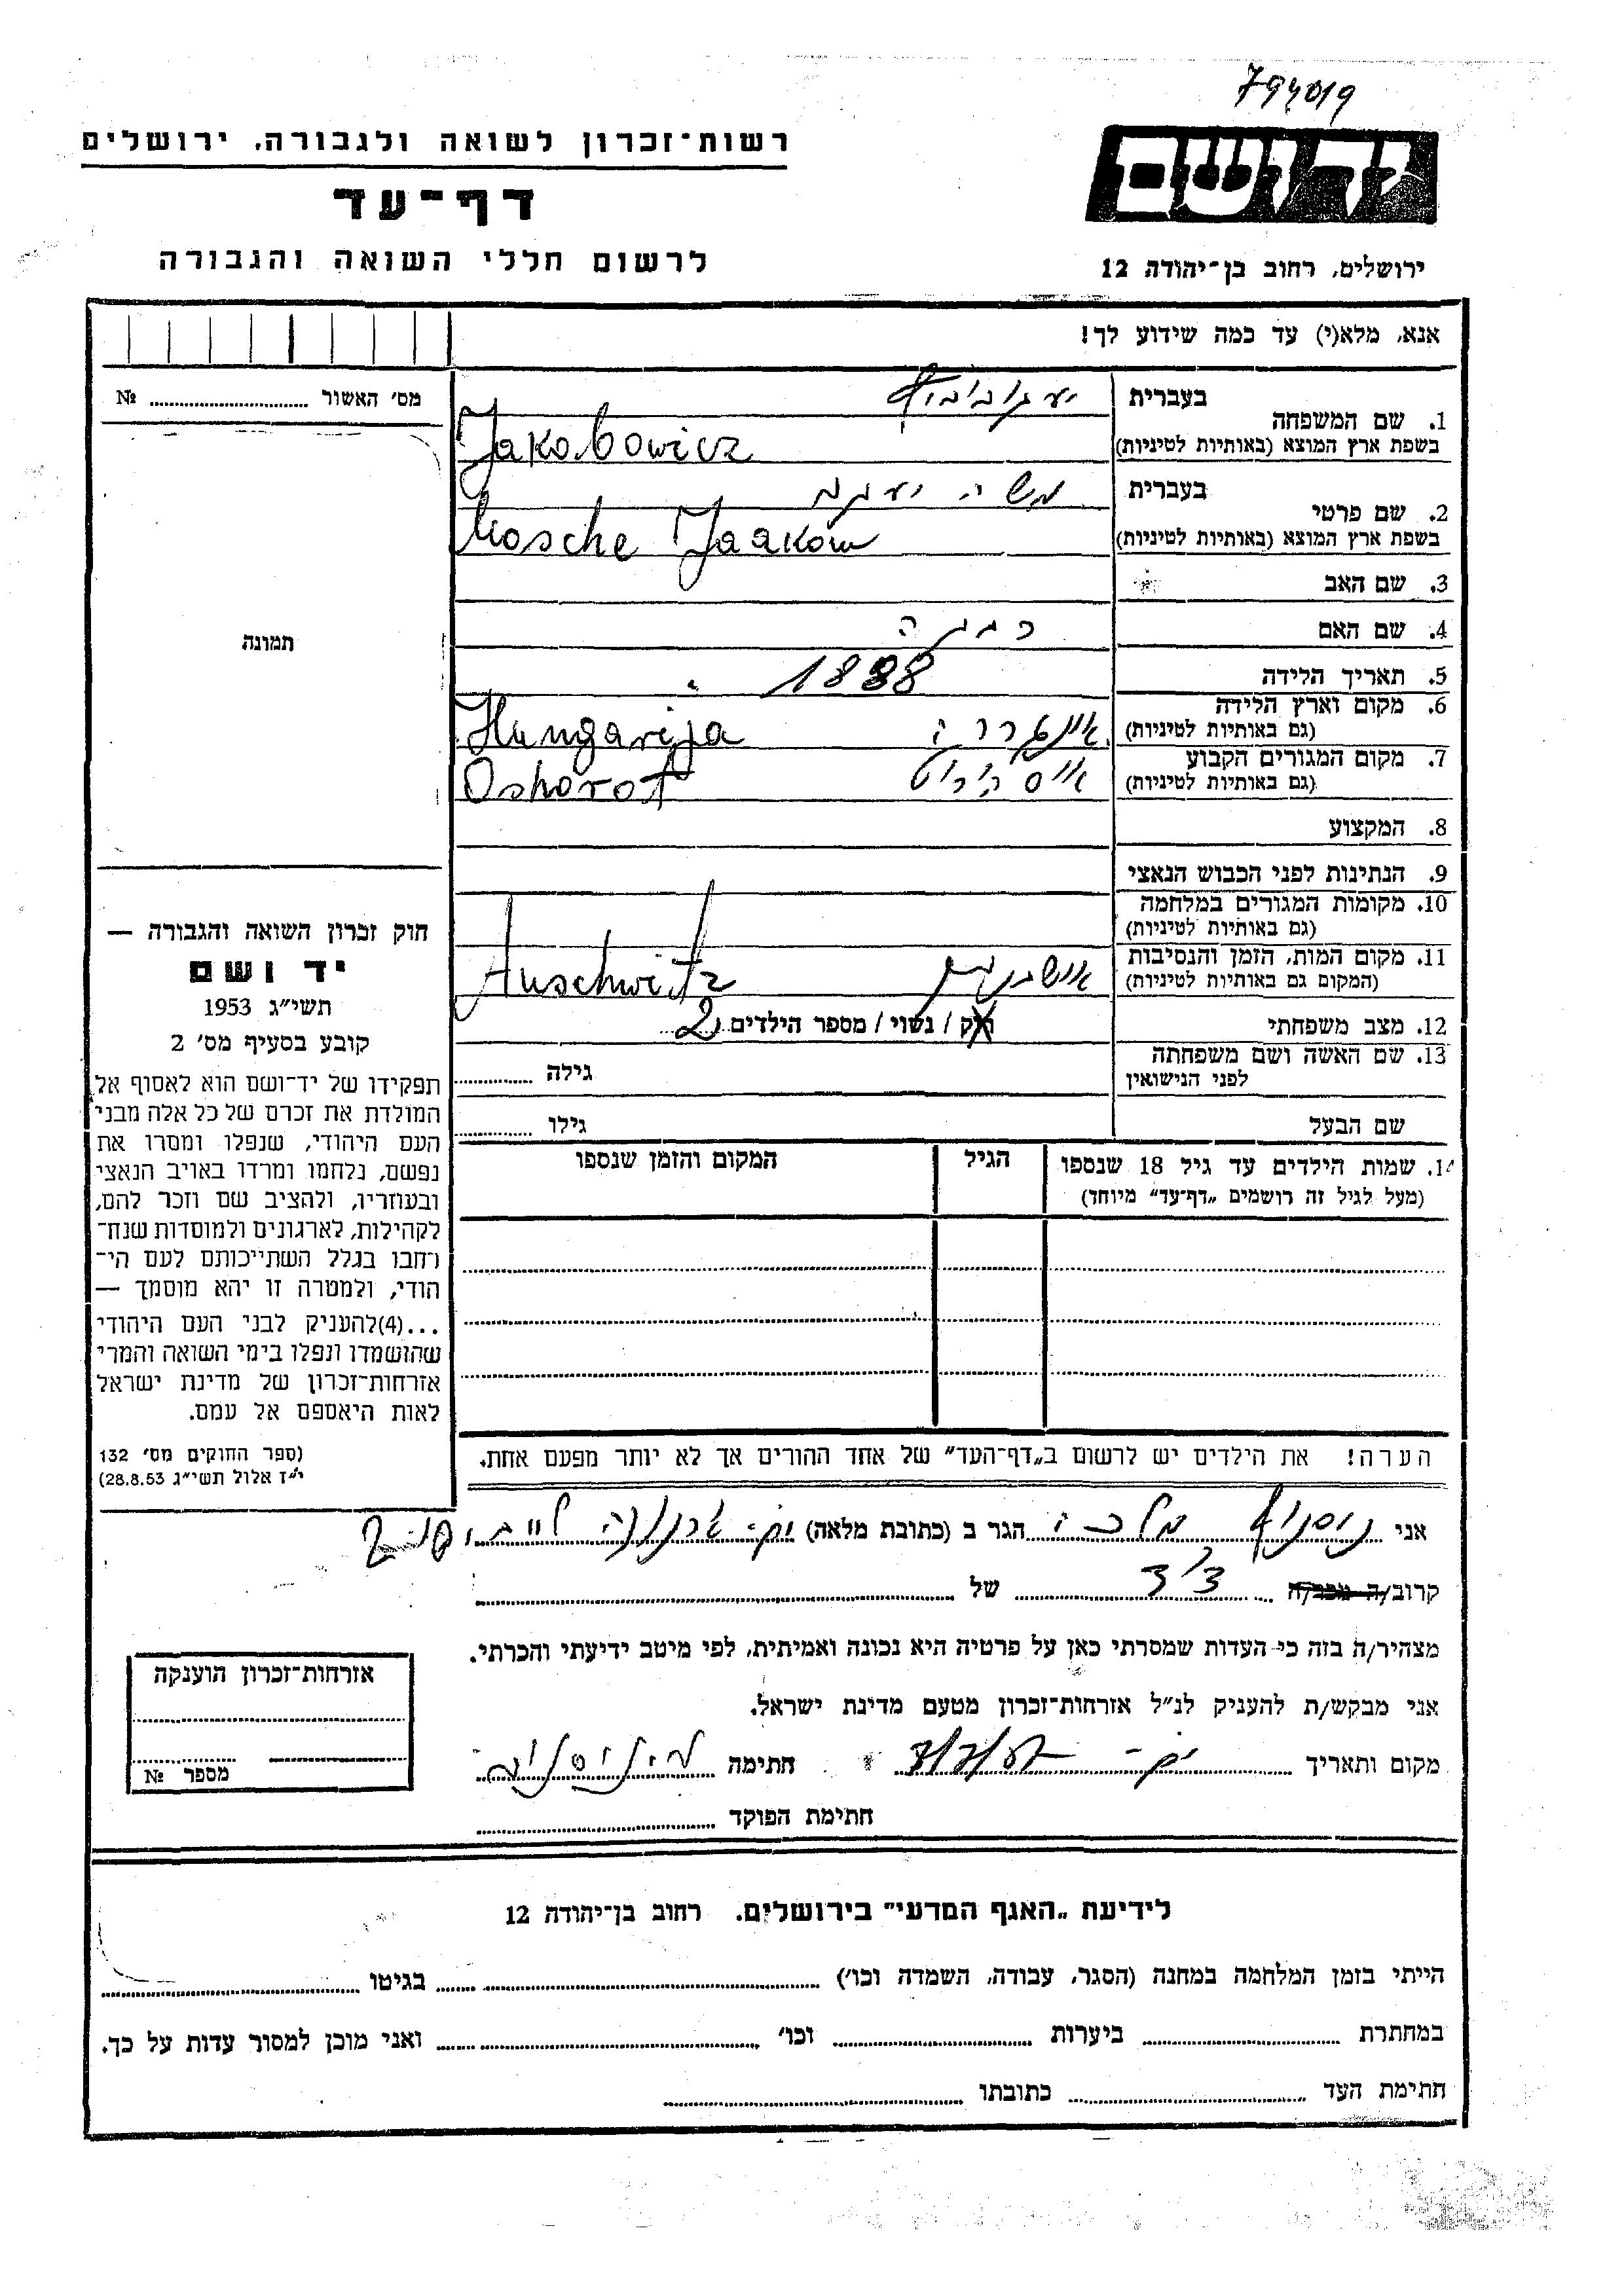 794019
רשות־זכרון לשואה ולגבורה, ירושלים
יד ושם
דף־עד
לרשום חללי השואה והגבורה
ירושלים, רחוב בן־יהודה 12
אנא, מלא(י) עד כמה שידוע לך!
מס׳ האשור № ........
תמונה
1. שם המשפחה
בעברית
יעקובוביץ
בשפת ארץ המוצא (באותיות לטיניות)
Jakobowicz
2. שם פרטי
בעברית
משה יעקב
בשפת ארץ המוצא (באותיות לטיניות)
Mosche Jaakow
3. שם האב
4. שם האם
5. תאריך הלידה
1888
6. מקום וארץ הלידה
(גם באותיות לטיניות)
אונגריה Hungarija
7. מקום המגורים הקבוע
(גם באותיות לטיניות)
Oshorot
8. המקצוע
9. הנתינות לפני הכבוש הנאצי
10. מקומות המגורים במלחמה
(גם באותיות לטיניות)
11. מקום המות, הזמן והנסיבות
(המקום גם באותיות לטיניות)
אושוויץ Auschwitz
12. מצב משפחתי
רוק / נשוי / מספר הילדים 2
13. שם האשה ושם משפחתה
לפני הנישואין
גילה ........
שם הבעל
גילו ........
14. שמות הילדים עד גיל 18 שנספו
(מעל לגיל זה רושמים „דף־עד״ מיוחד)
הגיל
המקום והזמן שנספו
חוק זכרון השואה והגבורה —
יד ושם
תשי״ג 1953
קובע בסעיף מס׳ 2
תפקידו של יד־ושם הוא לאסוף אל
המולדת את זכרם של כל אלה מבני
העם היהודי, שנפלו ומסרו את
נפשם, נלחמו ומרדו באויב הנאצי
ובעוזריו, ולהציב שם וזכר להם,
לקהילות, לארגונים ולמוסדות שנח־
רחבו בגלל השתייכותם לעם הי־
הודי, ולמטרה זו יהא מוסמך —
...(4)להעניק לבני העם היהודי
שהושמדו ונפלו בימי השואה והמרי
אזרחות־זכרון של מדינת ישראל
לאות היאספם אל עמם.
(ספר החוקים מס׳ 132
י״ז אלול תשי״ג 28.8.53)
הערה! את הילדים יש לרשום ב„דף־העד״ של אחד ההורים אך לא יותר מפעם אחת.
אני מלכה הגר ב (כתובת מלאה)
קרוב/ה מכר/ה של ........
מצהיר/ה בזה כי העדות שמסרתי כאן על פרטיה היא נכונה ואמיתית, לפי מיטב ידיעתי והכרתי.
אני מבקש/ת להעניק לנ״ל אזרחות־זכרון מטעם מדינת ישראל.
מקום ותאריך חתימה
חתימת הפוקד ........
אזרחות־זכרון הוענקה
מספר №
לידיעת „האגף המדעי״ בירושלים. רחוב בן־יהודה 12
הייתי בזמן המלחמה במחנה (הסגר, עבודה, השמדה וכו׳) ........ בגיטו ........
במחתרת ........ ביערות ........ וכו׳ ........ ואני מוכן למסור עדות על כך.
חתימת העד ........ כתובתו ........